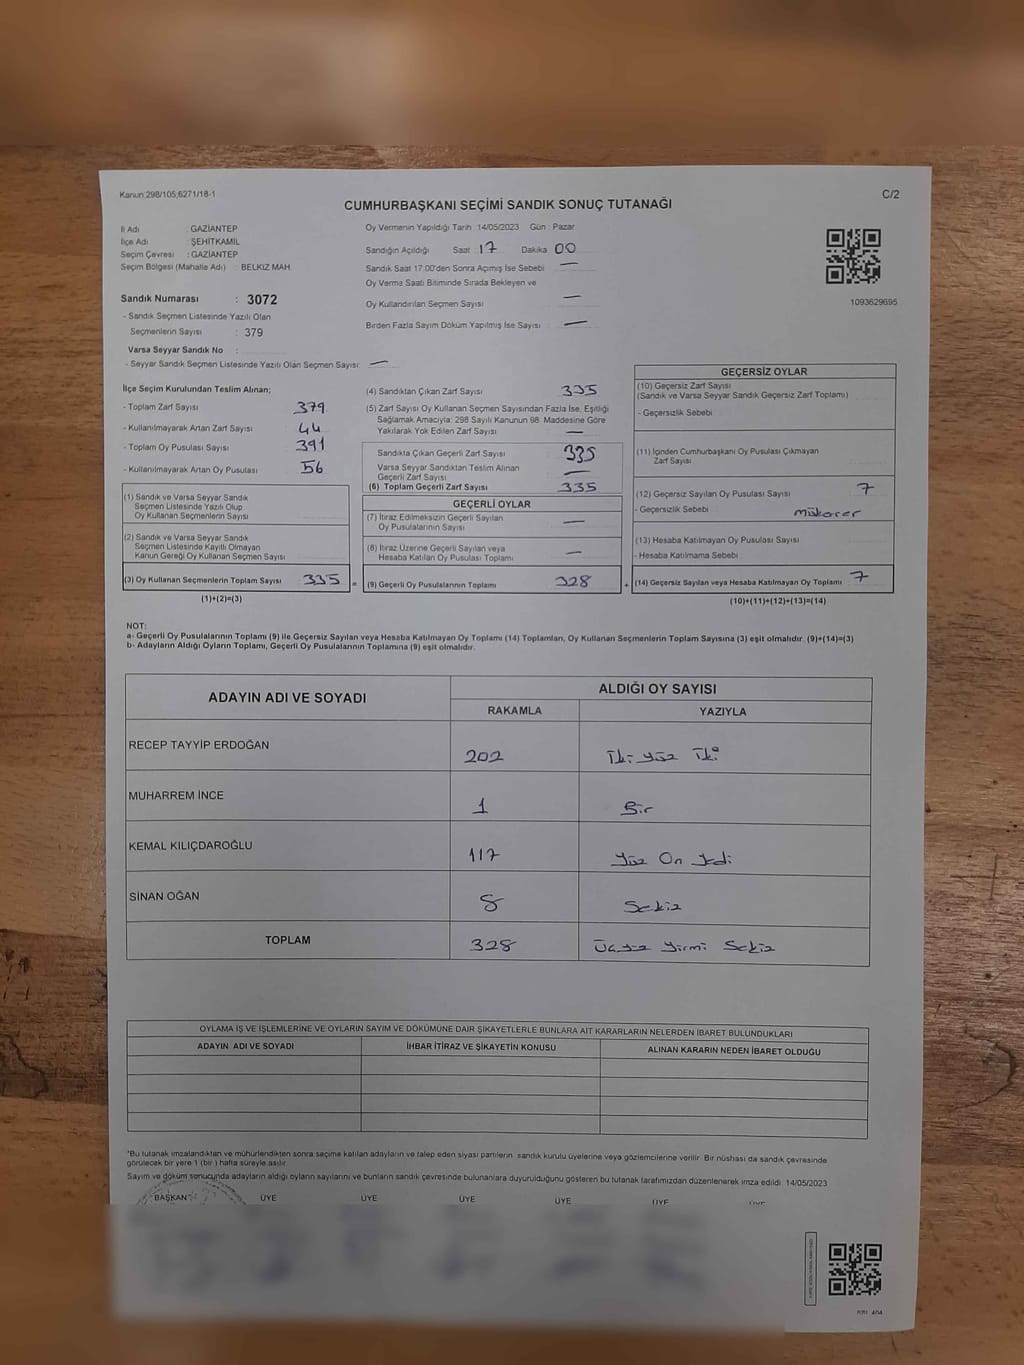 Kanun:298/105;6271/18-1
C/2
CUMHURBAŞKANI SEÇİMİ SANDIK SONUÇ TUTANAĞI
İl Adı : GAZİANTEP
İlçe Adı : ŞEHİTKAMİL
Seçim Çevresi : GAZİANTEP
Seçim Bölgesi (Mahalle Adı) : BELKIZ MAH.
Sandık Numarası : 3072
- Sandık Seçmen Listesinde Yazılı Olan
Seçmenlerin Sayısı : 379
Varsa Seyyar Sandık No :
- Seyyar Sandık Seçmen Listesinde Yazılı Olan Seçmen Sayısı: —
Oy Vermenin Yapıldığı Tarih :14/05/2023 Gün : Pazar
Sandığın Açıldığı Saat :17 Dakika 00
Sandık Saat 17:00'den Sonra Açımış İse Sebebi —
Oy Verme Saati Bitiminde Sırada Bekleyen ve
Oy Kullandırılan Seçmen Sayısı —
Birden Fazla Sayım Döküm Yapılmış İse Sayısı —
1093629695
İlçe Seçim Kurulundan Teslim Alınan;
- Toplam Zarf Sayısı 379
- Kullanılmayarak Artan Zarf Sayısı 44
- Toplam Oy Pusulası Sayısı 391
- Kullanılmayarak Artan Oy Pusulası 56
(1) Sandık ve Varsa Seyyar Sandık
Seçmen Listesinde Yazılı Olup
Oy Kullanan Seçmenlerin Sayısı
(2) Sandık ve Varsa Seyyar Sandık
Seçmen Listesinde Kayıtlı Olmayan
Kanun Gereği Oy Kullanan Seçmen Sayısı
(3) Oy Kullanan Seçmenlerin Toplam Sayısı 335 =
(1)+(2)=(3)
(4) Sandıktan Çıkan Zarf Sayısı 335
(5) Zarf Sayısı Oy Kullanan Seçmen Sayısından Fazla İse, Eşitliği
Sağlamak Amacıyla; 298 Sayılı Kanunun 98. Maddesine Göre
Yakılarak Yok Edilen Zarf Sayısı —
Sandıkta Çıkan Geçerli Zarf Sayısı 335
Varsa Seyyar Sandıktan Teslim Alınan
Geçerli Zarf Sayısı —
(6) Toplam Geçerli Zarf Sayısı 335
GEÇERLİ OYLAR
(7) İtiraz Edilmeksizin Geçerli Sayılan
Oy Pusulalarının Sayısı —
(8) İtiraz Üzerine Geçerli Sayılan veya
Hesaba Katılan Oy Pusulaları Toplamı —
(9) Geçerli Oy Pusulalarının Toplamı 328 +
GEÇERSİZ OYLAR
(10) Geçersiz Zarf Sayısı
(Sandık ve Varsa Seyyar Sandık Geçersiz Zarf Toplamı)
- Geçersizlik Sebebi
(11) İçinden Cumhurbaşkanı Oy Pusulası Çıkmayan
Zarf Sayısı
(12) Geçersiz Sayılan Oy Pusulası Sayısı 7
- Geçersizlik Sebebi mükerer
(13) Hesaba Katılmayan Oy Pusulası Sayısı
- Hesaba Katılmama Sebebi
(14) Geçersiz Sayılan veya Hesaba Katılmayan Oy Toplamı 7
(10)+(11)+(12)+(13)=(14)
NOT:
a- Geçerli Oy Pusulalarının Toplamı (9) ile Geçersiz Sayılan veya Hesaba Katılmayan Oy Toplamı (14) Toplamları, Oy Kullanan Seçmenlerin Toplam Sayısına (3) eşit olmalıdır. (9)+(14)=(3)
b- Adayların Aldığı Oyların Toplamı, Geçerli Oy Pusulalarının Toplamına (9) eşit olmalıdır.
ADAYIN ADI VE SOYADI ALDIĞI OY SAYISI
RAKAMLA YAZIYLA
RECEP TAYYİP ERDOĞAN 202 İki yüz İki
MUHARREM İNCE 1 Bir
KEMAL KILIÇDAROĞLU 117 Yüz On Yedi
SİNAN OĞAN 8 Sekiz
TOPLAM 328 Üçyüz Yirmi Sekiz
OYLAMA İŞ VE İŞLEMLERİNE VE OYLARIN SAYIM VE DÖKÜMÜNE DAİR ŞİKAYETLERLE BUNLARA AİT KARARLARIN NELERDEN İBARET BULUNDUKLARI
ADAYIN ADI VE SOYADI İHBAR İTİRAZ VE ŞİKAYETİN KONUSU ALINAN KARARIN NEDEN İBARET OLDUĞU
*Bu tutanak imzalandıktan ve mühürlendikten sonra seçime katılan adayların ve talep eden siyasi partilerin sandık kurulu üyelerine veya gözlemcilerine verilir. Bir nüshası da sandık çevresinde
görülecek bir yere 1 (bir) hafta süreyle asılır.
Sayım ve döküm sonucunda adayların aldığı oyların sayılarını ve bunların sandık çevresinde bulunanlara duyurulduğunu gösteren bu tutanak tarafımızdan düzenlenerek imza edildi. 14/05/2023
BAŞKAN ÜYE ÜYE ÜYE ÜYE ÜYE ÜYE